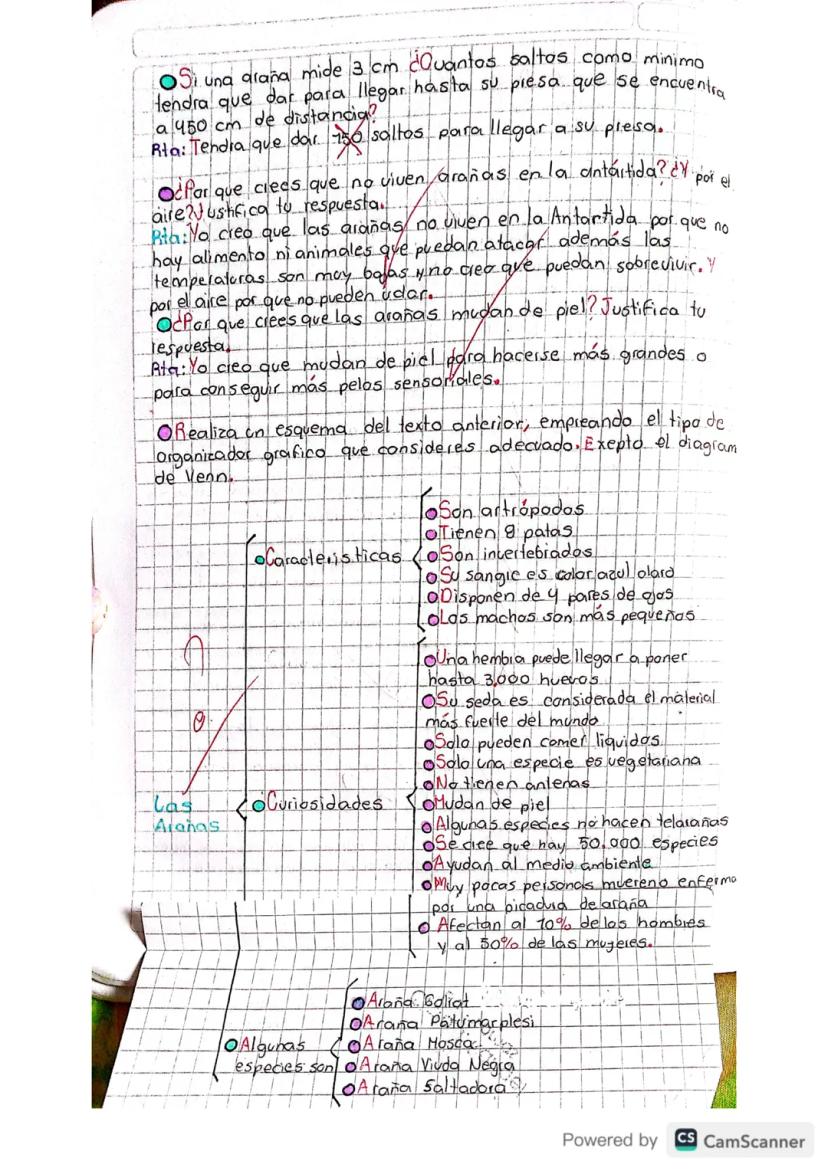 Si una araña mide 3 cm ¿Cuantos saltos como minimo
tendra que dar para llegar hasta su presa que se encuentra
a 450 cm de distancia?
Rta: Tendra que dar 150 saltos para llegar a su presa.
¿Por que crees que no viven arañas en la antártida? ¿Y por el
aire? Justifica tu respuesta.
Rta: Yo creo que las arañas no viven en la Antartida por que no
hay alimento ni animales que puedan atacar además las
temperaturas son muy bajas y no creo que puedan sobrevivir. Y
por el aire por que no pueden
¿Por que crees que las arañas mudan de piel? Justifica tu
respuesta.
Rta: Yo creo que mudan de piel para hacerse más grandes o
para conseguir más pelos sensoriales.
Realiza un esquema del texto anterior, empreando el tipo de
organizador grafico que consideres adecuado. Exepto el diagram
de Venn.
Las
Arañas
Caracteristicas
Son artrópodos
Tienen 8 patas
Son invertebrados
Su sangre es color azul claro
Disponen de 4 pares de ojos
Los machos son más pequeños
Curiosidades
Una hembra puede llegar a poner
hasta 3,000 huevos
Su seda es considerada el material
más fuerte del mundo
Solo pueden comer liquidos
Solo una especie es vegetariana
No tienen antenas
Mudan de piel
Algunas especies no hacen telarañas
Se cree que hay 50.000 especies
Ayudan al medio ambiente
Muy pocas personas mueren o enferma
por una picadura de araña
Afectan al 10% de los hombres
y al 50% de las mujeres.
Algunas
especies son
Araña Goliat
Araña
Araña Mosca
Araña Viuda Negra
Araña Saltadora
Powered by CS CamScanner